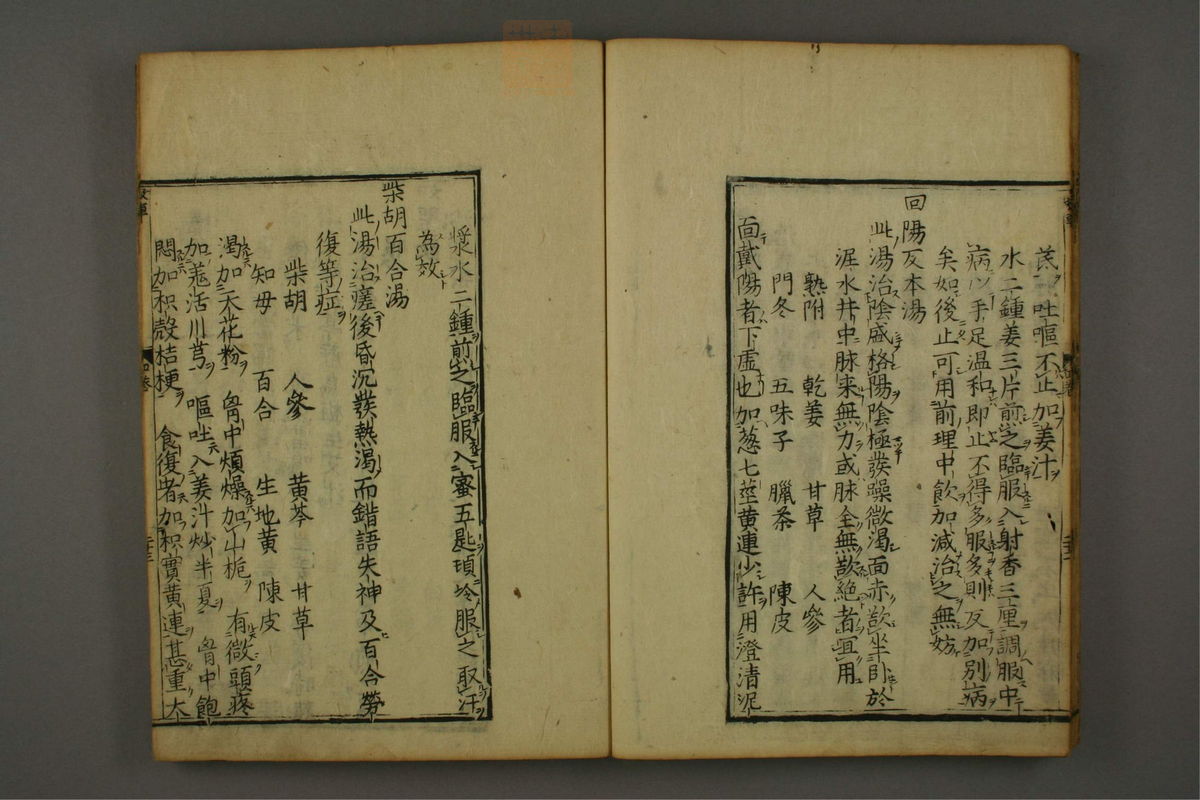 茋 吐嘔不止加姜汁
水二鍾姜三片煎之臨服入射香三厘調服中
病以手足溫和即止不得多服多則反加別病
矣如後止可用前理中飲加減治之無妨
回陽反本湯
此湯治陰盛格陽陰極發躁微渴面赤欲坐卧於
泥水井中脉来無力或脉全無欲絕者宜用
熟附 乾姜 甘草 人參
門冬 五味子 臘茶 陳皮
面戴陽者下虛也加葱七莖黄連少許用澄清泥
漿水二鍾煎之臨服入蜜五匙頃冷服之取汗
為效
柴胡百合湯
此湯治瘥後昏沉發熱渴而錯語失神及百合勞
復等症
柴胡 人參 黄芩 甘草
知母 百合 生地黄 陳皮
渴加天花粉 胷中煩燥加山梔 有微頭疼
加羗活川芎 嘔吐入姜汁炒半夏 胷中飽
悶加枳殻桔梗 食復者加枳實黄連甚重大